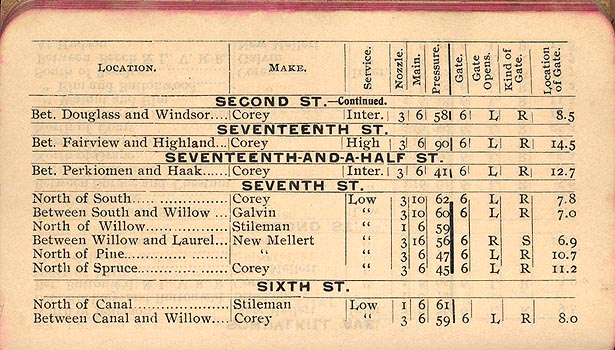 LOCATION. MAKE. Service. Nozzle. Main. Pressure. Gate. Gate Opens. Kind of Gate. Location of Gate.
SECOND ST.—Continued.
Bet. Douglass and Windsor.... Corey Inter. 3 6 58 6 L R 8.5
SEVENTEENTH ST.
Bet. Fairview and Highland... Corey High 3 6 90 6 L R 14.5
SEVENTEENTH-AND-A-HALF ST.
Bet. Perkiomen and Haak...... Corey Inter. 3 6 41 6 L R 12.7
SEVENTH ST.
North of South..... Corey Low 3 10 62 6 L R 7.8
Between South and Willow ... Galvin “ 3 10 60 6 L R 7.0
North of Willow..... Stileman “ 1 6 59
Between Willow and Laurel... New Mellert “ 3 16 56 6 R S 6.9
North of Pine..... “ “ 3 6 47 6 L R 10.7
North of Spruce..... Corey “ 3 6 45 6 L R 11.2
SIXTH ST.
North of Canal..... Stileman Low 1 6 61
Between Canal and Willow.... Corey “ 3 6 59 6 L R 8.0